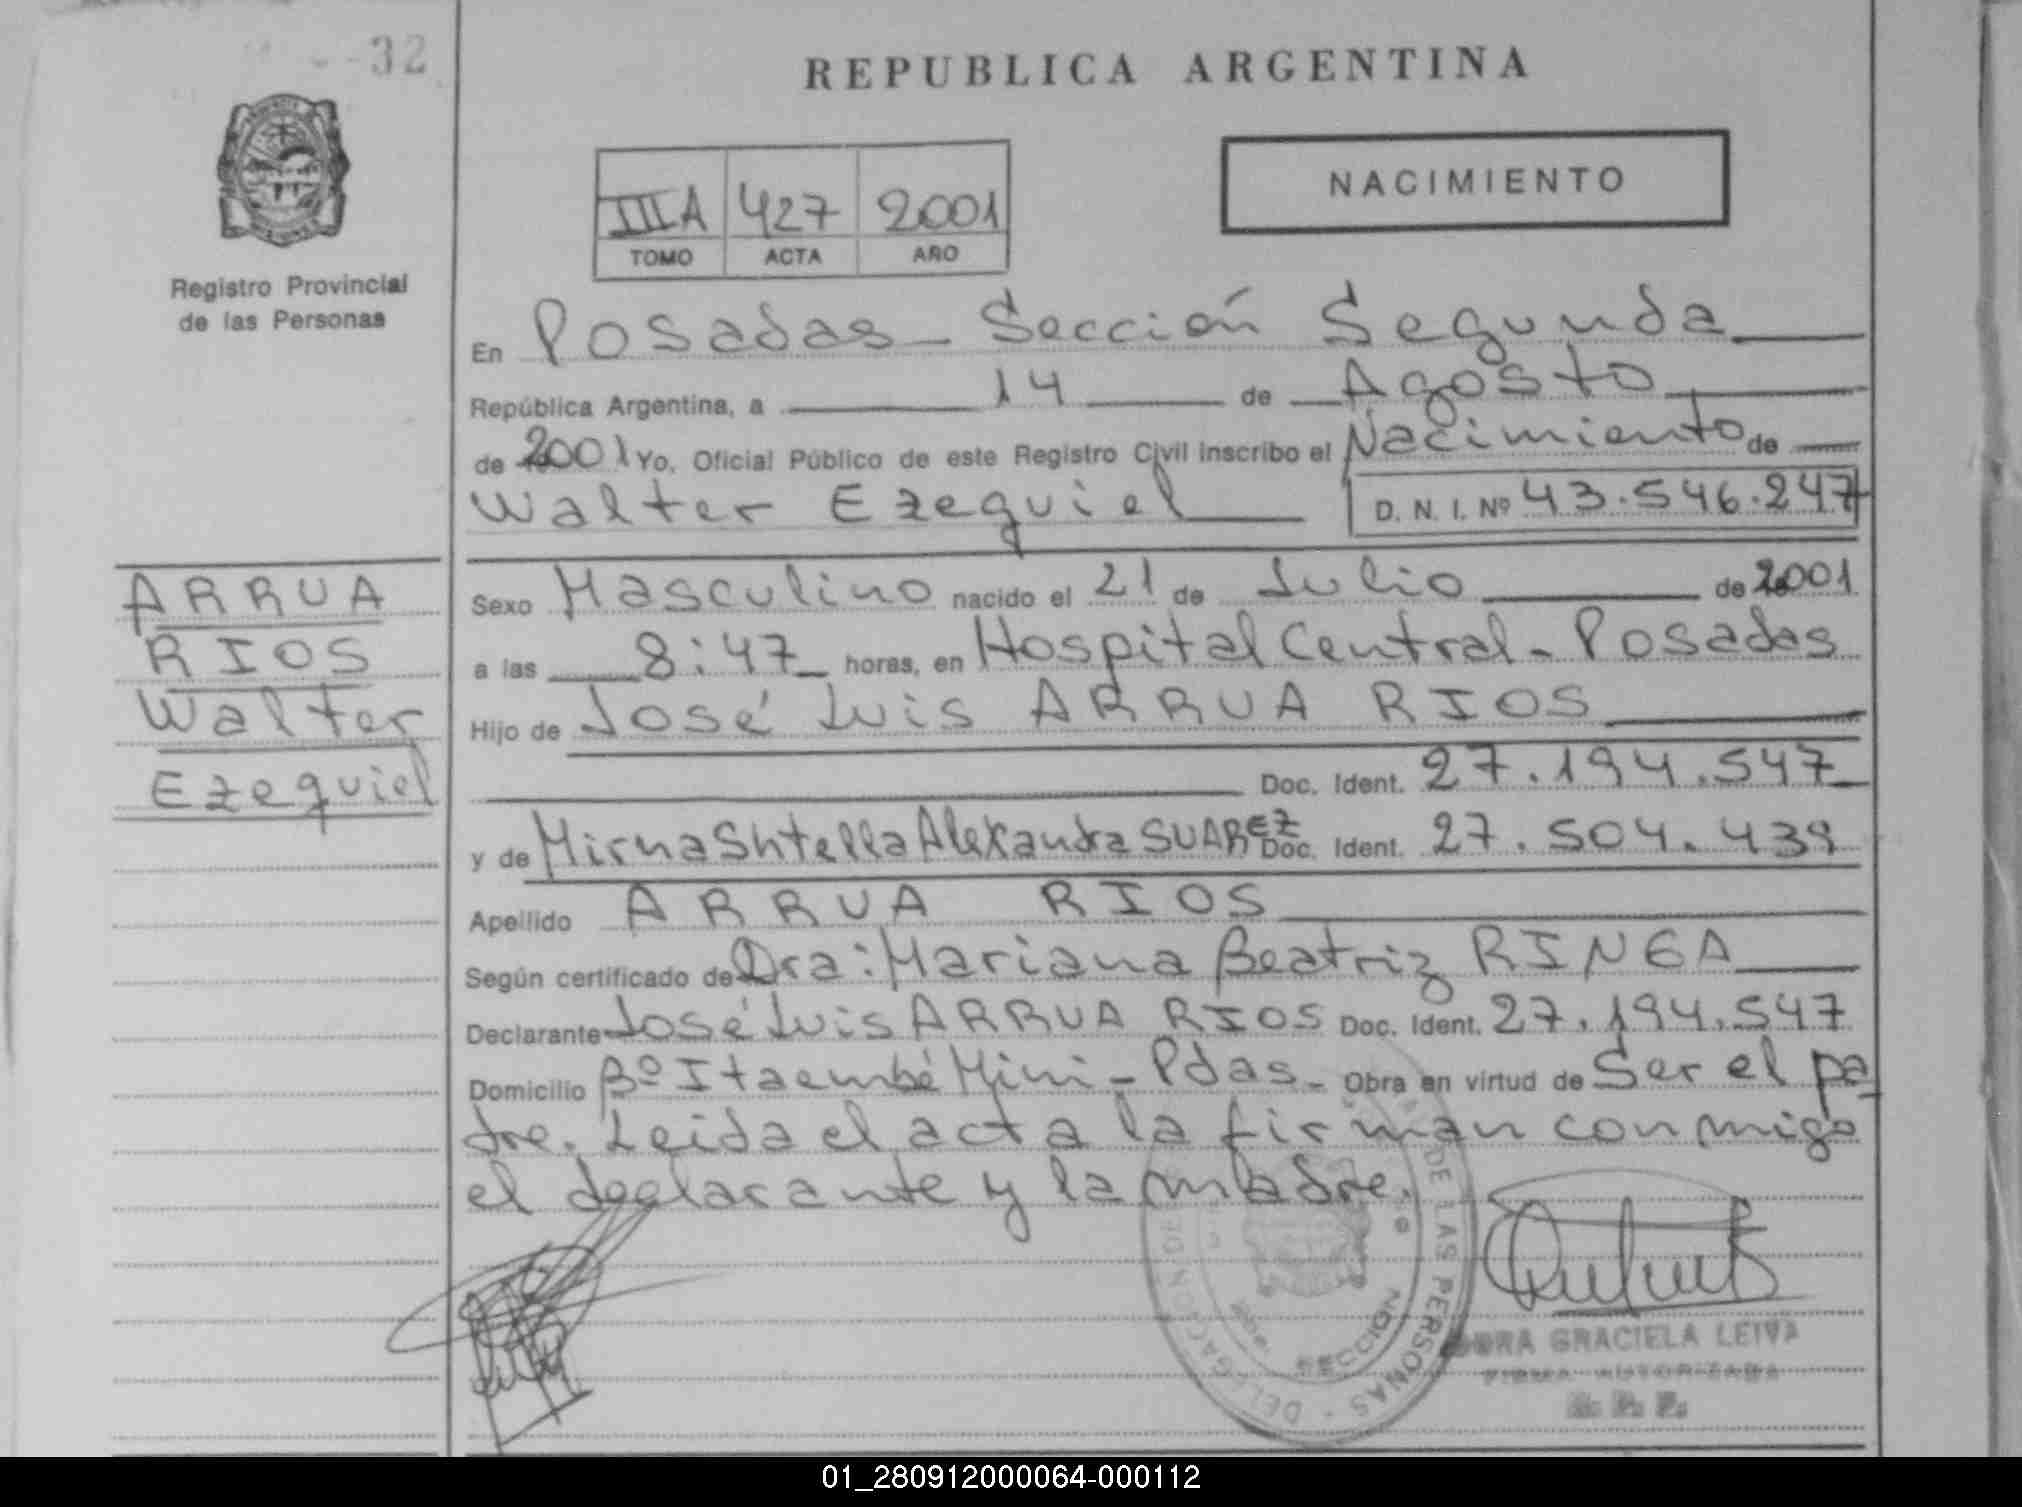 32
REPUBLICA ARGENTINA
NACIMIENTO
IIIA 427 2001
TOMO ACTA AÑO
Registro Provincial
de las Personas
En Posadas - Sección Segunda
República Argentina, a 14 de Agosto
de 2001 Yo, Oficial Público de este Registro Civil inscribo el Nacimiento de
Walter Ezequiel D. N. I. Nº 43.546.247
ARRUA
RIOS
Walter
Ezequiel
Sexo Masculino nacido el 21 de Julio de 2001
a las 8:47 horas, en Hospital Central - Posadas
Hijo de José Luis ARRUA RIOS
Doc. Ident. 27.194.547
y de Mirna Shtella Alexandra SUAREZ Doc. Ident. 27.504.439
Apellido ARRUA RIOS
Según certificado de Dra: Mariana Beatriz RINGA
Declarante José Luis ARRUA RIOS Doc. Ident. 27.194.547
Domicilio Bº Itaembé Mini - Pdas. Obra en virtud de Ser el pa
dre. Leida el acta la firman conmigo
el declarante y la madre.
DE LAS PERSONAS - DELEGACION
SECCION
GRACIELA LEIVA
FIRMA AUTORIZADA
01_280912000064-000112